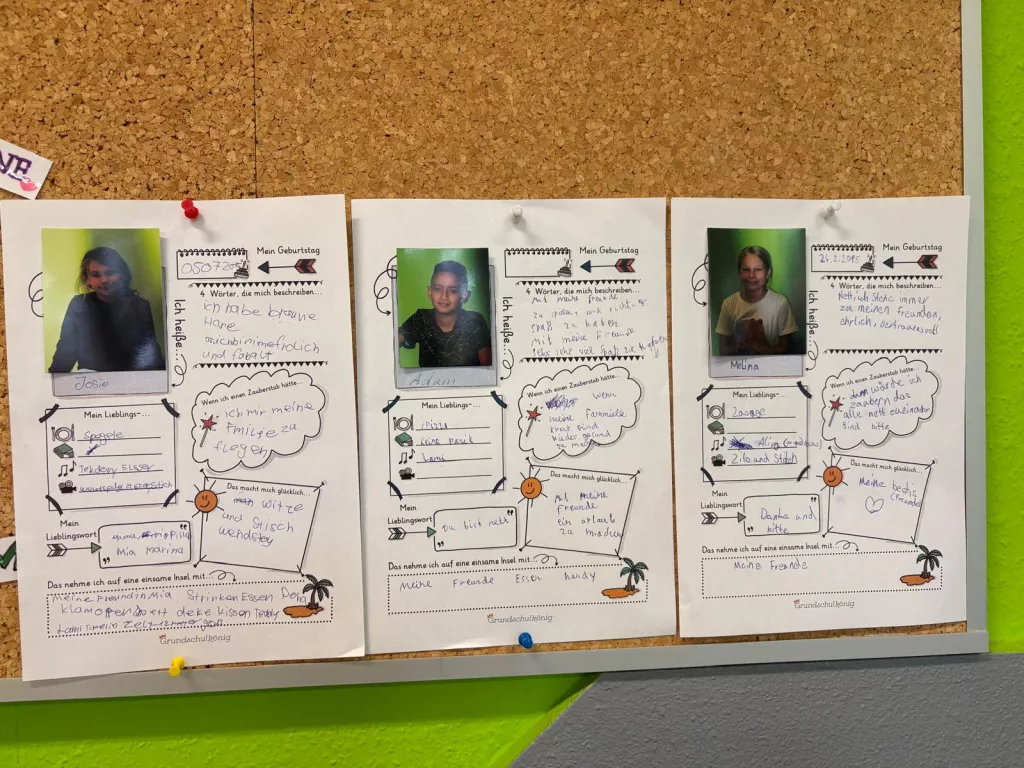 Mein Geburtstag
4 Wörter, die mich beschreiben...
ich habe braune
Hare
und
Ich heiße...
Josie
Wenn ich einen Zauberstab hätte...
ich mir meine
Fmilfe zu
flegen
Mein Lieblings-...
Spagete
Das macht mich glücklich...
witze
und Stisch
Mein
Lieblingswort
Mia marina
Das nehme ich auf eine einsame Insel mit...
meine Freundin Mia Strinken Essen
deke kissen Teddy
Grundschulkönig
Mein Geburtstag
4 Wörter, die mich beschreiben...
Mit meine freunde
zu spielen und
spaß zu haben
Mit meine Freunde
sehr viel Spaß zu
Ich heiße...
Adam
Wenn ich einen Zauberstab hätte...
wenn
meine Fammielle
krank sind
wieder gesund
zu machen
Mein Lieblings-...
Pizza
keine
Das macht mich glücklich...
Mit meine
Freunde
ein urlaub
zu machen
Mein
Lieblingswort
Du bist nett
Das nehme ich auf eine einsame Insel mit...
Meine Freunde Essen handy
Grundschulkönig
Mein Geburtstag
4 Wörter, die mich beschreiben...
Nett, ich stehe immer
zu meinen freunden,
ehrlich, vertrauensvoll
Ich heiße...
Melina
Wenn ich einen Zauberstab hätte...
dann würde ich
zaubern das
alle nett zueinader
sind bitte
Mein Lieblings-...
Lasange
Lilo und Stitch
Das macht mich glücklich...
Meine bestis
(freunde)
Mein
Lieblingswort
Danke und
bitte
Das nehme ich auf eine einsame Insel mit...
Meine Freunde
Grundschulkönig